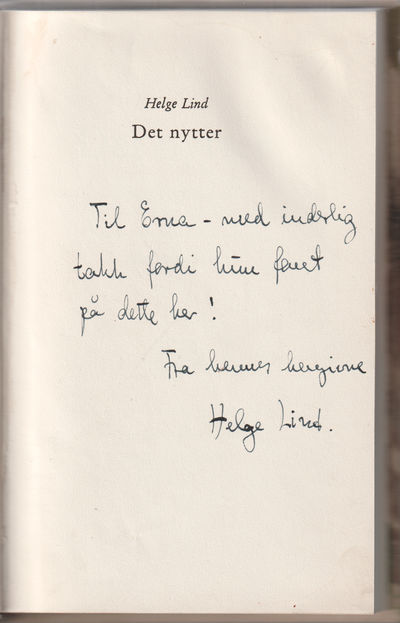 Helge Lind
Det nytter
Til Erna - med inderlig
takk fordi hun
på dette her!
Fra hennes hengivne
Helge Lind.